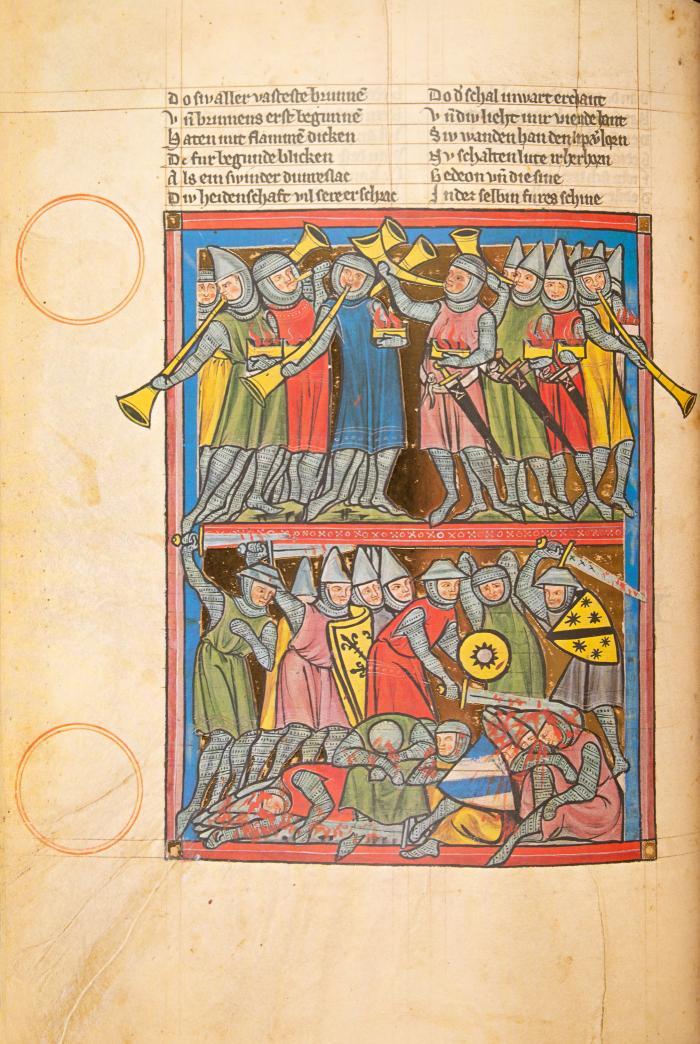 Do siv aller vasteste brunnē
Vn̄ brinnens erst begunnē
Haten mit flammē dicken
De fur begunde blicken
Als ein swinder dunreslac
Div heidenschaft vil sere erschrac
Do d̾ schal in wart
Vn̄ div lieht
Siv wanden han den
Sv schalten lute ir herhorn
Gedeon vn̄ die sine
In der selbin fures schine